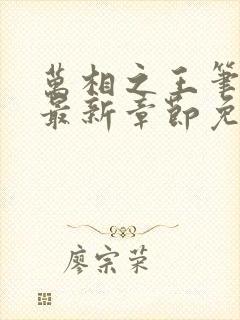 萬相之王筆
最新章節免
廖宗荣